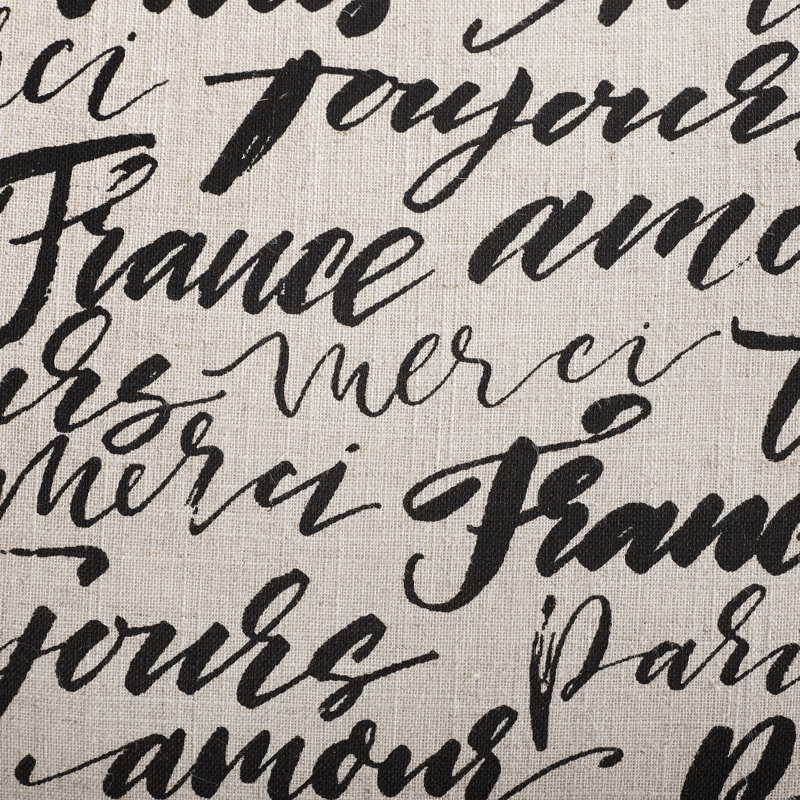 ci toujours
France amo
urs merci T
merci Franc
jours pari
amour P